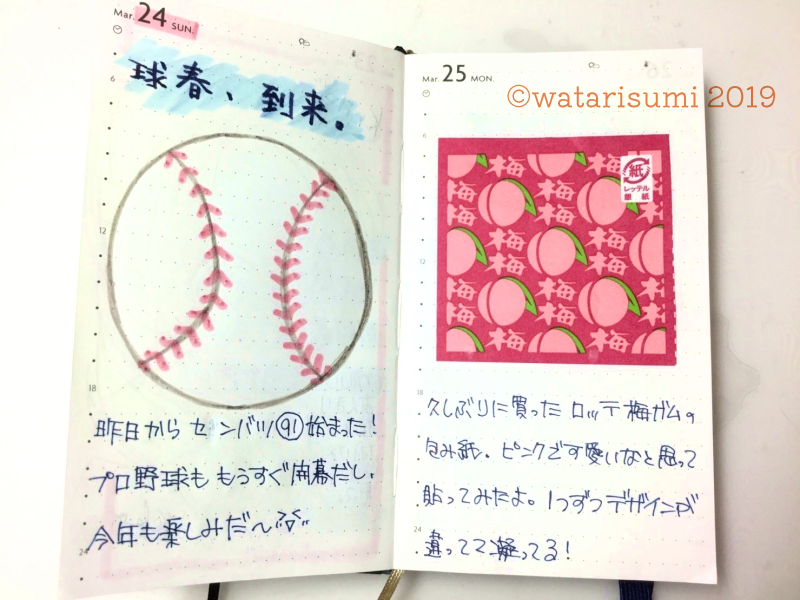 Mar. 24 SUN.
6
球春、到来。
12
18
昨日から センバツ 91 始まった!
プロ野球も もうすぐ開幕だし、
24
今年も楽しみだ〜
Mar. 25 MON.
©watarisumi 2019
6
紙
レッテル
紙
梅 梅 梅
梅 梅 梅
梅 梅 梅
梅 梅 梅
12
18
久しぶりに買った ロッテ 梅ガムの
包み紙。ピンクで可愛いなと思って
貼ってみたよ。1つずつデザインが
24
違ってて凝ってる!